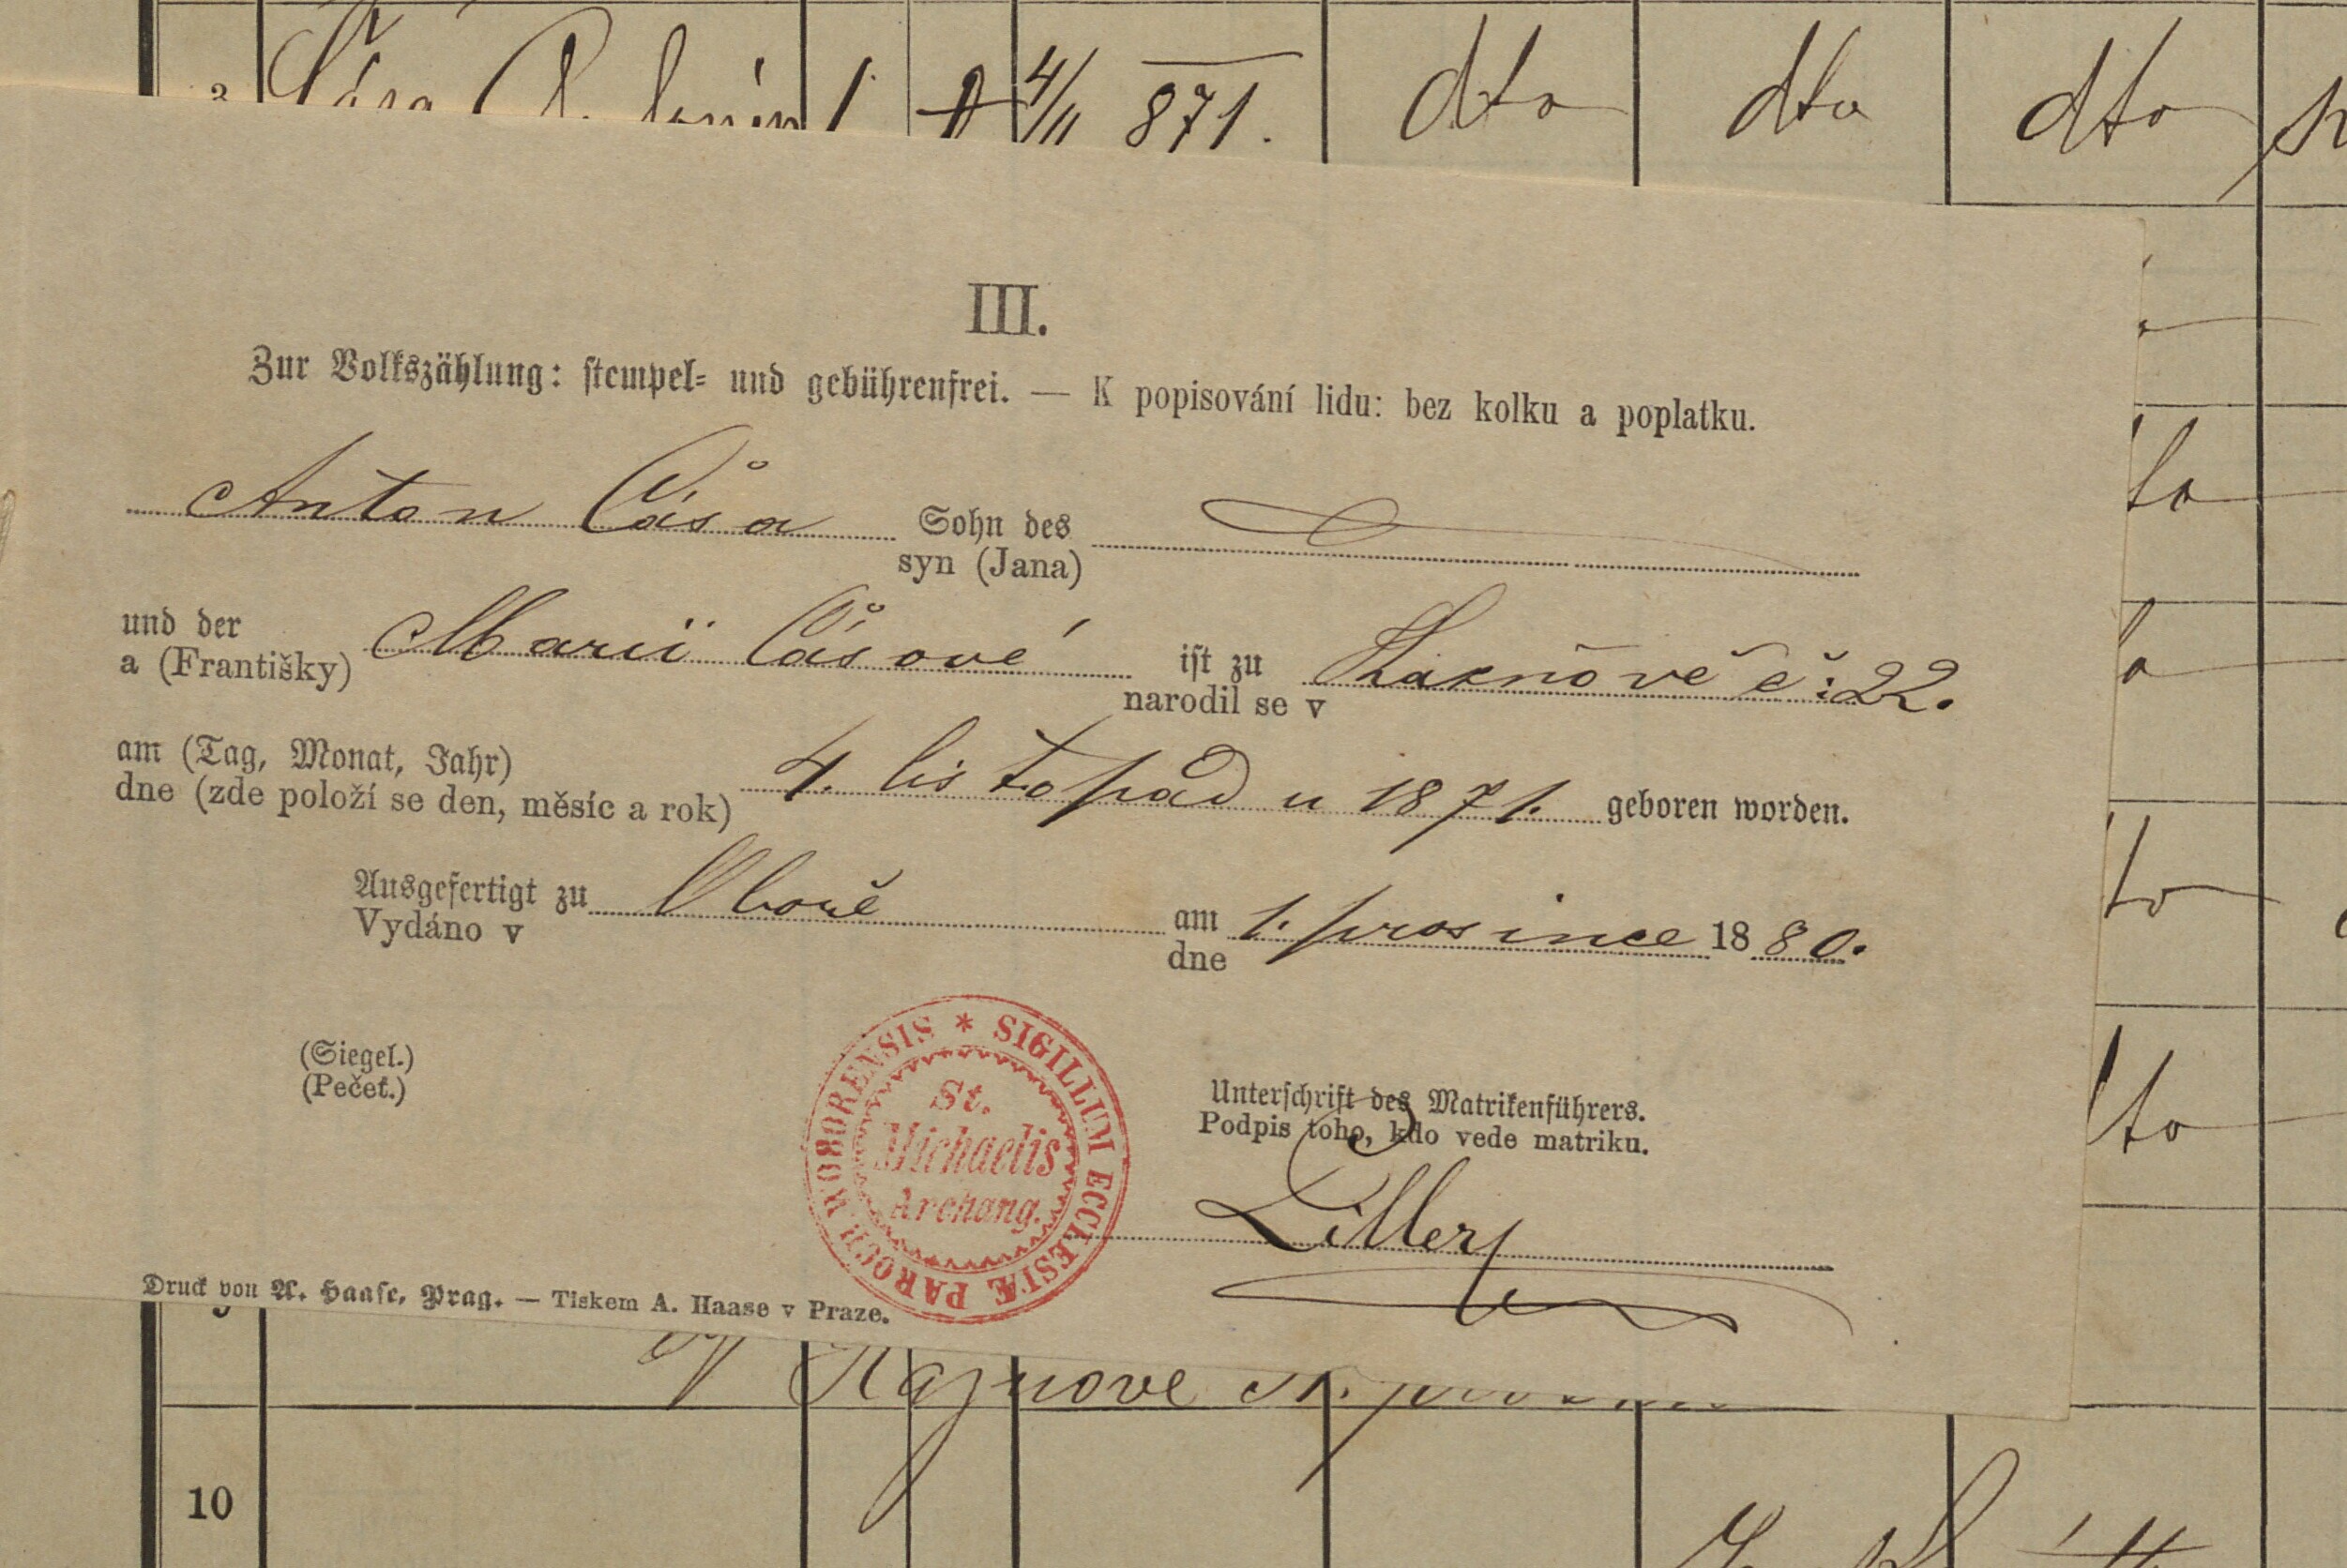 Čása
1 4/11 871. dto dto dto
III.
Zur Volkszählung: stempel- und gebührenfrei. — K popisování lidu: bez kolku a poplatku.
Anton Čása Sohn des
syn (Jana)
und der
a (Františky) Marii Čásové ist zu
narodil se v č: 22.
am (Tag, Monat, Jahr)
dne (zde položí se den, měsíc a rok) 4. listopadu 1871. geboren worden.
Ausgefertigt zu
Vydáno v Oboře am
dne 1. prosince 1880.
(Siegel.)
(Pečeť.)
* SIGILLUM ECCLESIÆ PAROCH WOBORENSIS
St.
Michaelis
Archang.
Unterschrift des Matrikenführers.
Podpis toho, kdo vede matriku.
Druck von A. Haase, Prag. — Tiskem A. Haase v Praze.
10